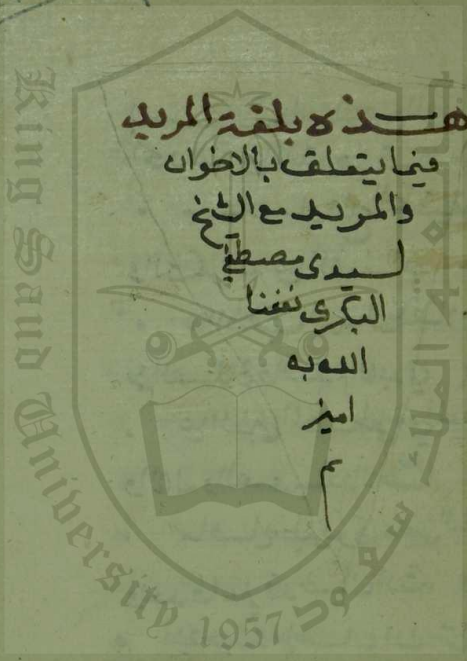 هذه بلغة المريد
فيما يتعلق بالاخوان
والمريد مع الشيخ
لسيدى مصطفى
البكرى نفعنا
الله به
امين
م
King Saud University
1957
جامعة الملك سعود